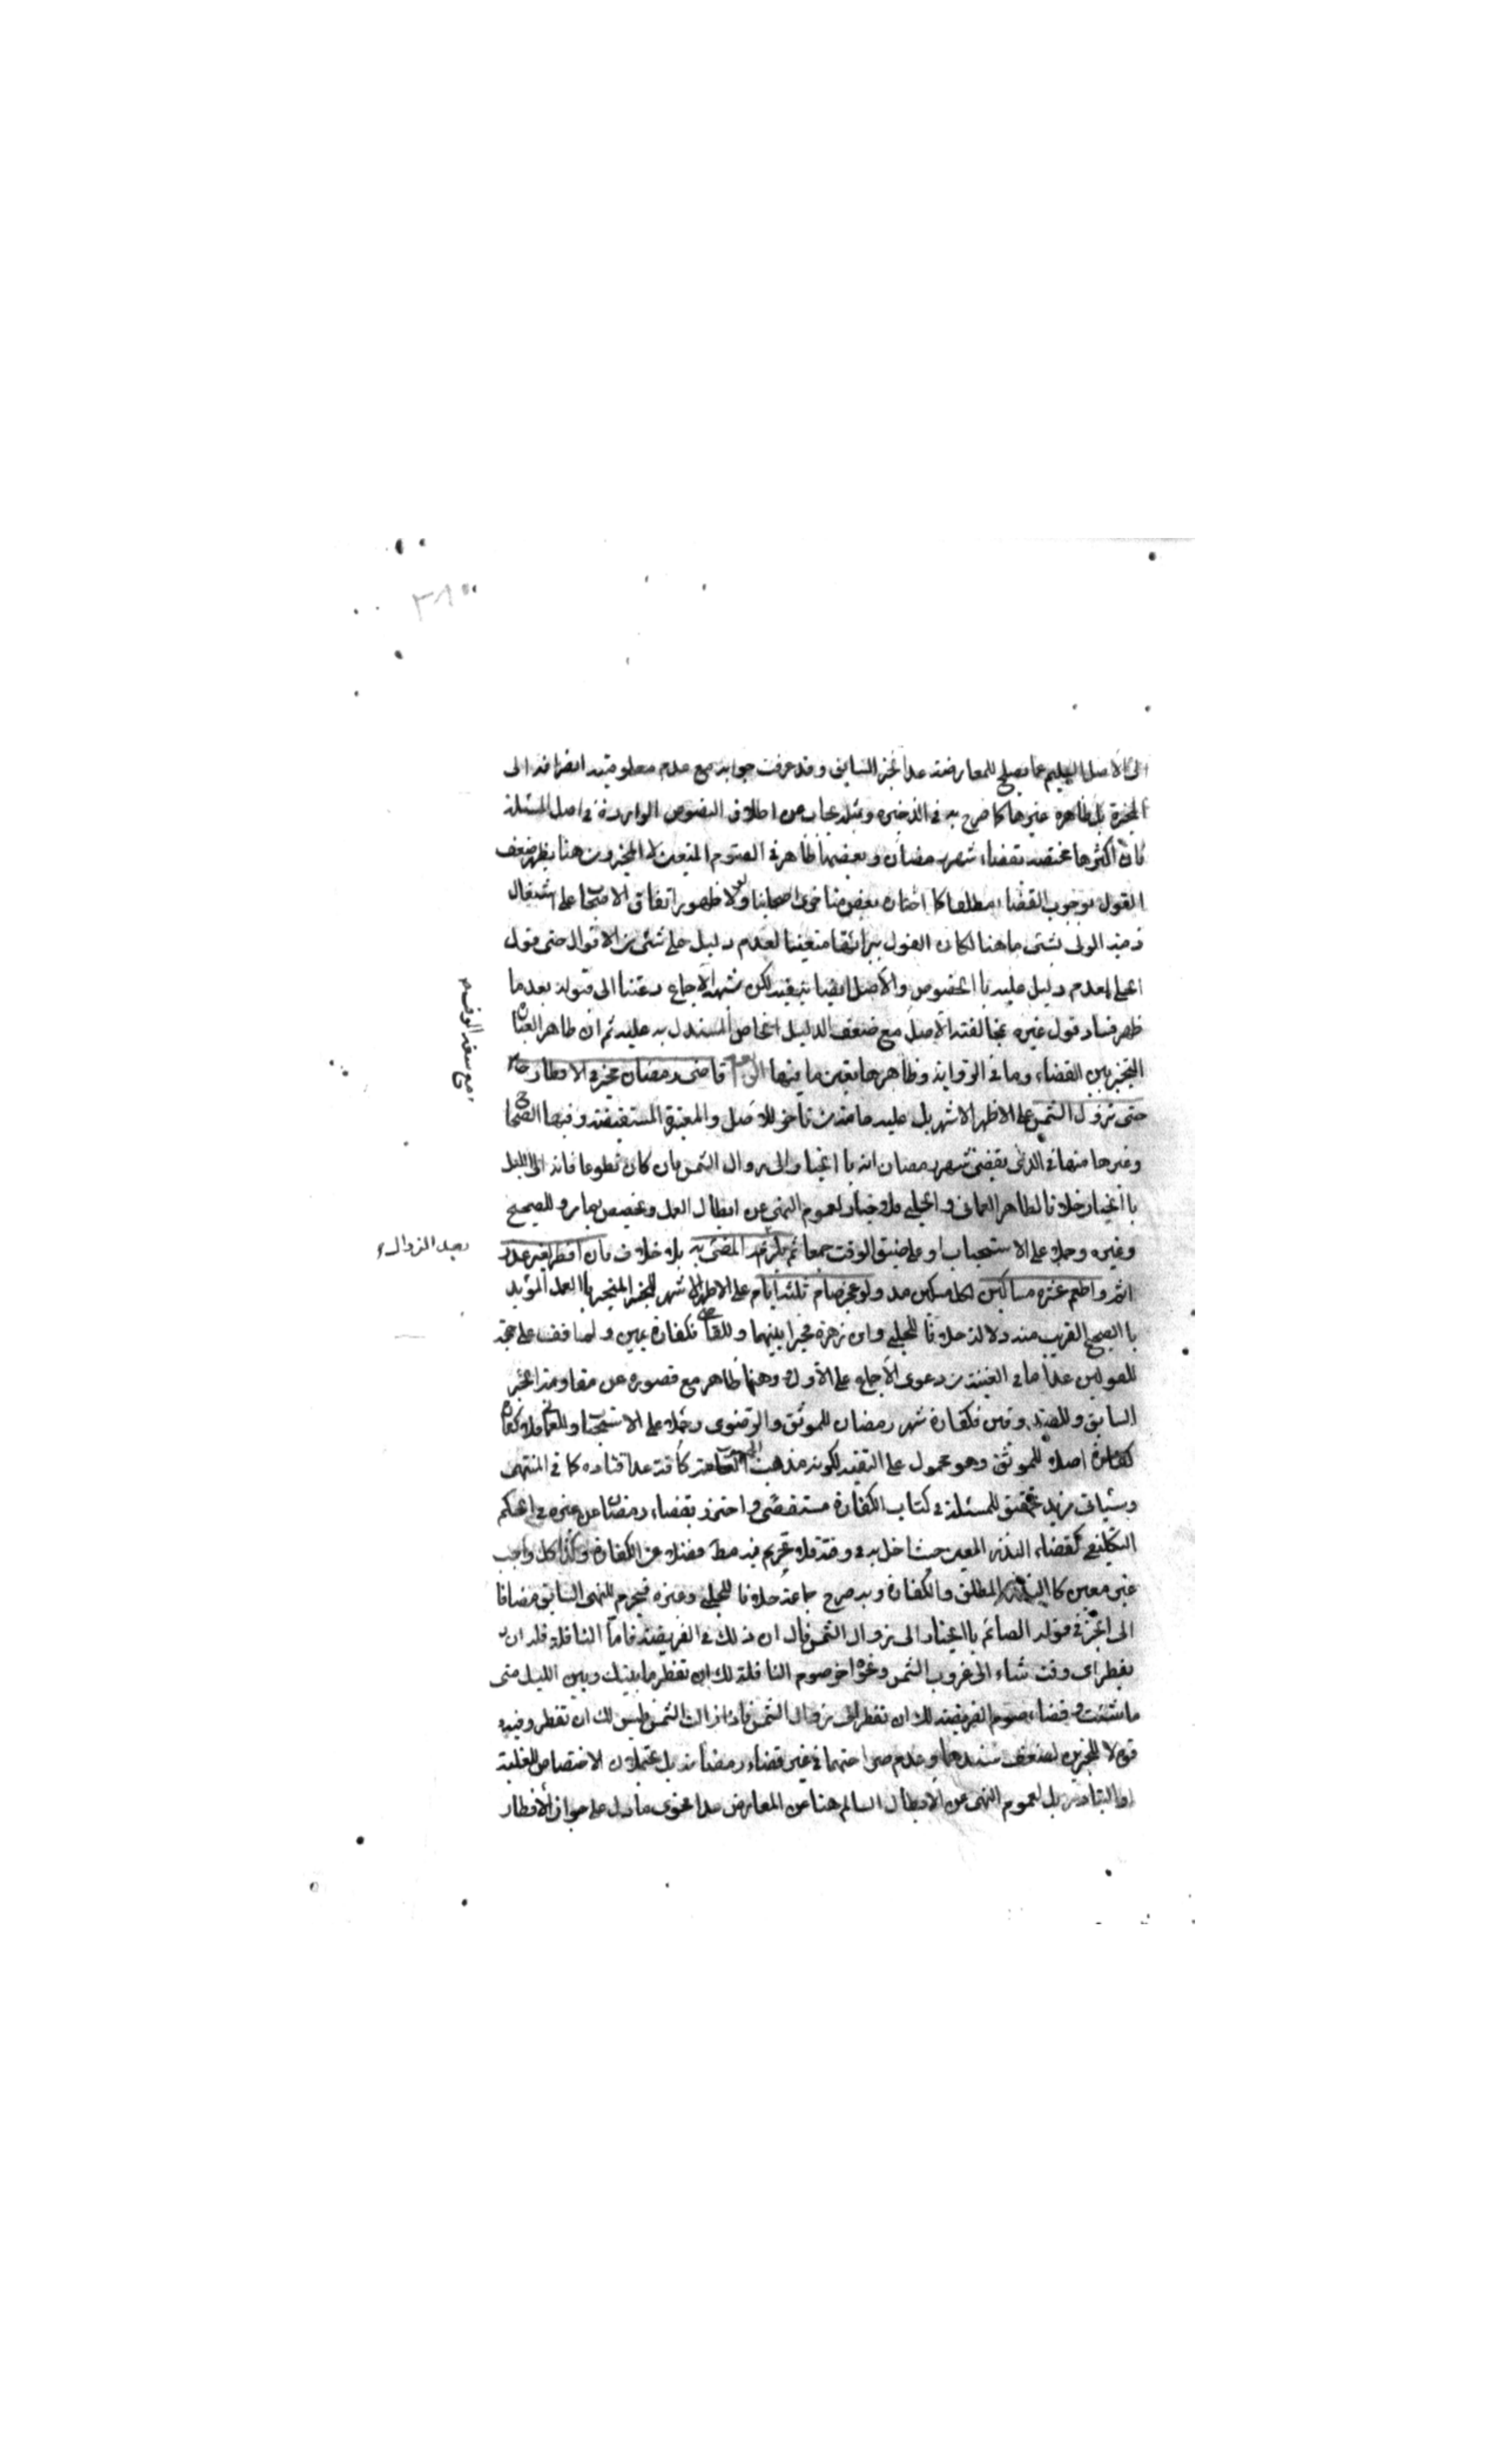 الى الاصل السليم عما يصلح للمعارضة عدا الخبر السابق وقد عرفت جوابه مع عدم معلومية انصرافه الى
المخيرة بل ظاهره غيرها كما صرح به في الذخيرة وبمثله يجاب عن اطلاق النصوص الواردة في اصل المسئلة
فان اكثرها مختصة بقضاء شهر رمضان وبعضها ظاهرة في الصوم المتعين لا المخير ومن هنا يظهر ضعف
القول بوجوب القضاء مطلقا كما اختاره بعض متاخرى اصحابنا ولولا ظهور اتفاق الاصحاب على اشتغال
ذمة الولى بشئ ما هنا لكان القول ببرائتها متعينا لعدم دليل على شئ من الاقوال حتى قول
الحلى لعدم دليل عليه بالخصوص والاصل ايضا ينفيه لكن شبهة الاجماع دعتنا الى قبوله بعد ما
ظهر فساد قول غيره بمخالفته الاصل مع ضعف الدليل الخاص المستدل به عليه ثم ان ظاهر العبارة
التخيير بين القضاء وما في الرواية وظاهرها تعين ما فيها قاضى رمضان مخير في الافطار
حتى تزول الشمس على الاظهر الاشهر بل عليه عامة من تاخر للاصل والمعتبرة المستفيضة وفيها الصحاح
وغيرها منها في الذى يقضى شهر رمضان انه بالخيار الى زوال الشمس فان كان تطوعا فانه الى الليل
بالخيار خلافا لظاهر العمانى والحلبى فلا خيار لعموم النهى عن ابطال العمل وتخصيص بما مر وللصحيح
وغيره وحملا على الاستحباب او على ضيق الوقت جمعا ثم يلزمه المضى فيه بلا خلاف فان افطر لغير عذر
اثم واطعم عشرة مساكين لكل مسكين مد ولو عجز صام ثلثة ايام على الاظهر الاشهر للخبر المنجبر بالعمل المؤيد
بالصحيح القريب منه دلالة خلافا للحلبى وابن زهرة فخيرا بينهما وللقاضى فكفارة يمين ولم اقف على حجة
للقولين عدا ما في الغنية من دعوى الاجماع على الاول ووهنها ظاهر مع قصوره عن مقاومة الخبر
السابق وللصدوقين فكفارة شهر رمضان للموثق والرضوى وحملا على الاستحباب وللعمانى فلا كفارة
كفارة اصلا للموثق وهو محمول على التقية لكونه مذهب العامة كافة عدا قتادة كما في المنتهى
وسياتى مزيد تحقيق للمسئلة في كتاب الكفارة مستقصى واحترز بقضاء رمضان عن غيره في الحكم
التكليفى كقضاء النذر المعين حيث اخل به في وقته فلا تحريم فيه فضلا عن الكفارة وكذا كل واجب
غير معين كالنذر المطلق والكفارة وبه صرح جماعة خلافا للحلبى وغيره فيحرم للنهى السابق مضافا
الى الخبر في قوله الصائم بالخيار الى زوال الشمس قال ان ذلك في الفريضة فاما النافلة فله ان
يفطر اى وقت شاء الى غروب الشمس ونحوه اخر صوم النافلة لك ان تفطر ما بينك وبين الليل متى
ما شئت وقضاء صوم الفريضة لك ان تفطر الى زوال الشمس فاذا زالت الشمس فليس لك ان تفطر وفيه
قوة لا للخبرين لضعف سندهما وعدم صراحتهما في غير قضاء رمضان بل يحتملان الاختصاص للغلبة
او التبادر بل لعموم النهى عن الابطال السالم هنا عن المعارض عدا فحوى ما دل على جواز الافطار
مع سعة الوقت
بعد الزوال